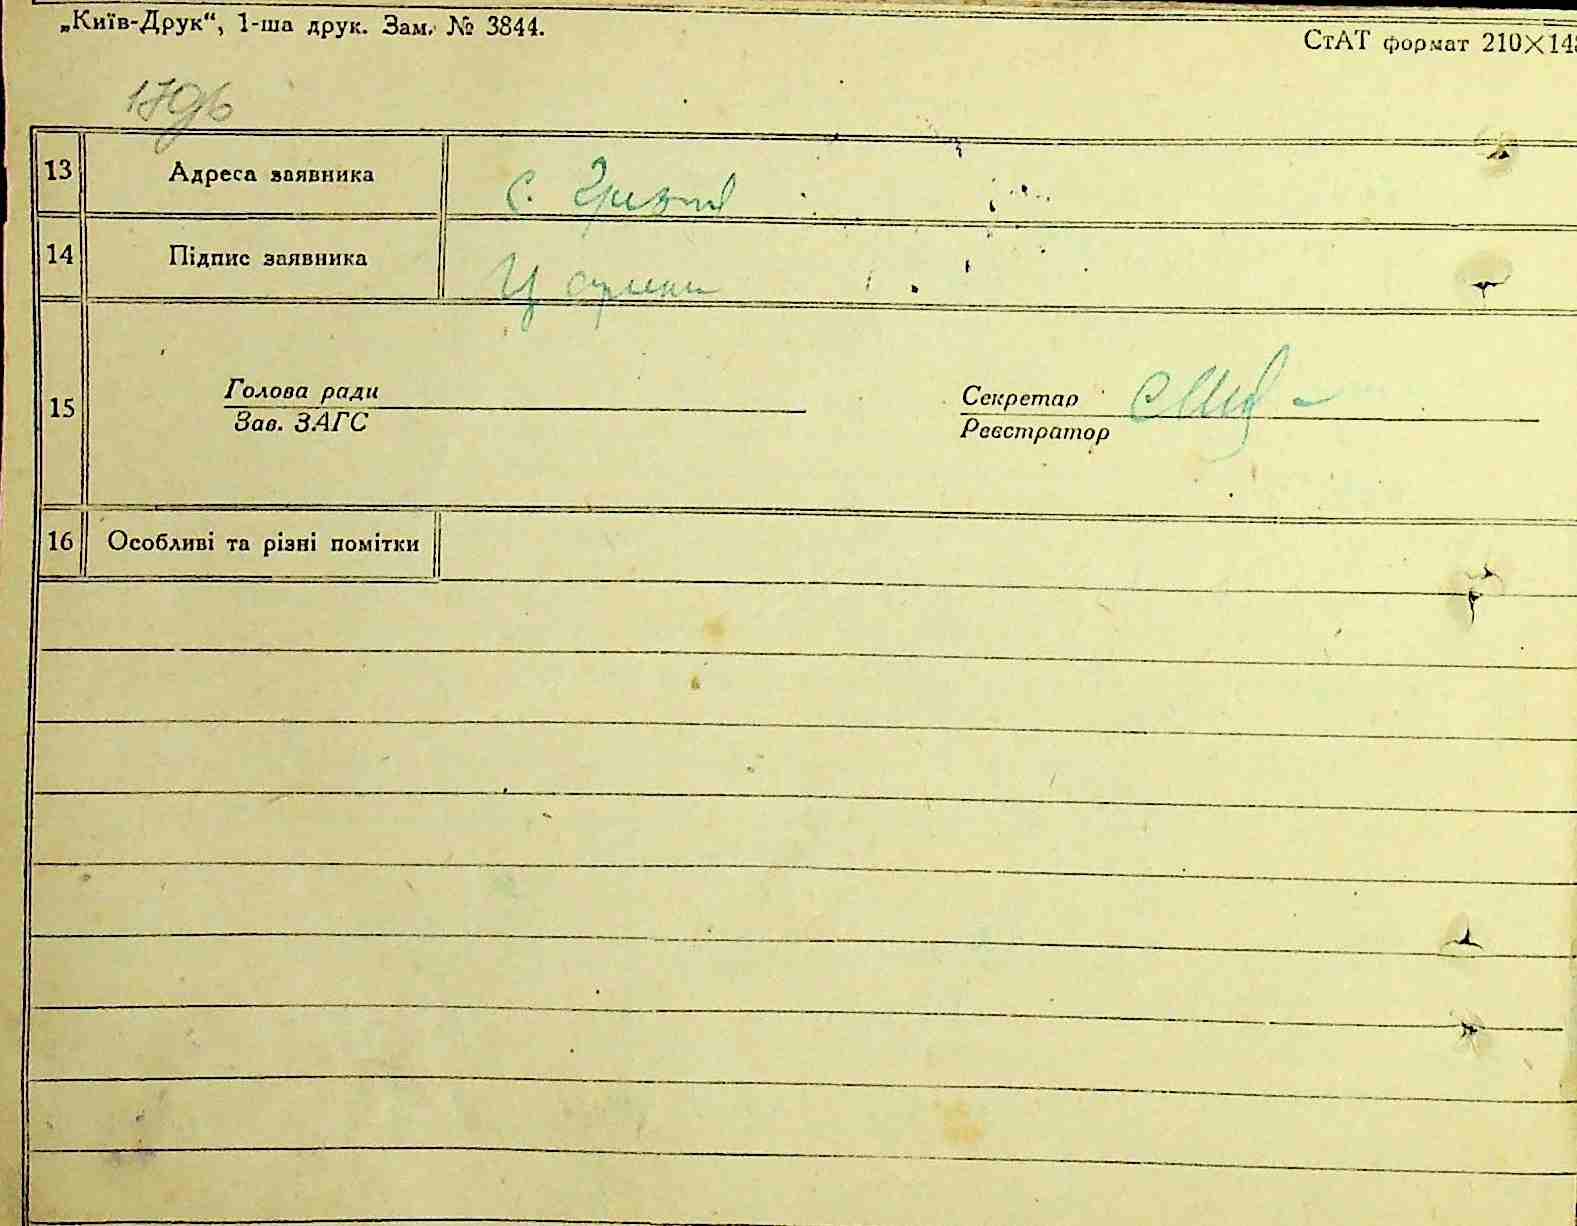 „Київ-Друк“, 1-ша друк. Зам. № 3844.
СтАТ формат 210×148
179б
13 Адреса заявника с.
14 Підпис заявника
15 Голова ради
Зав. ЗАГС
Секретар
Реєстратор
16 Особливі та різні помітки